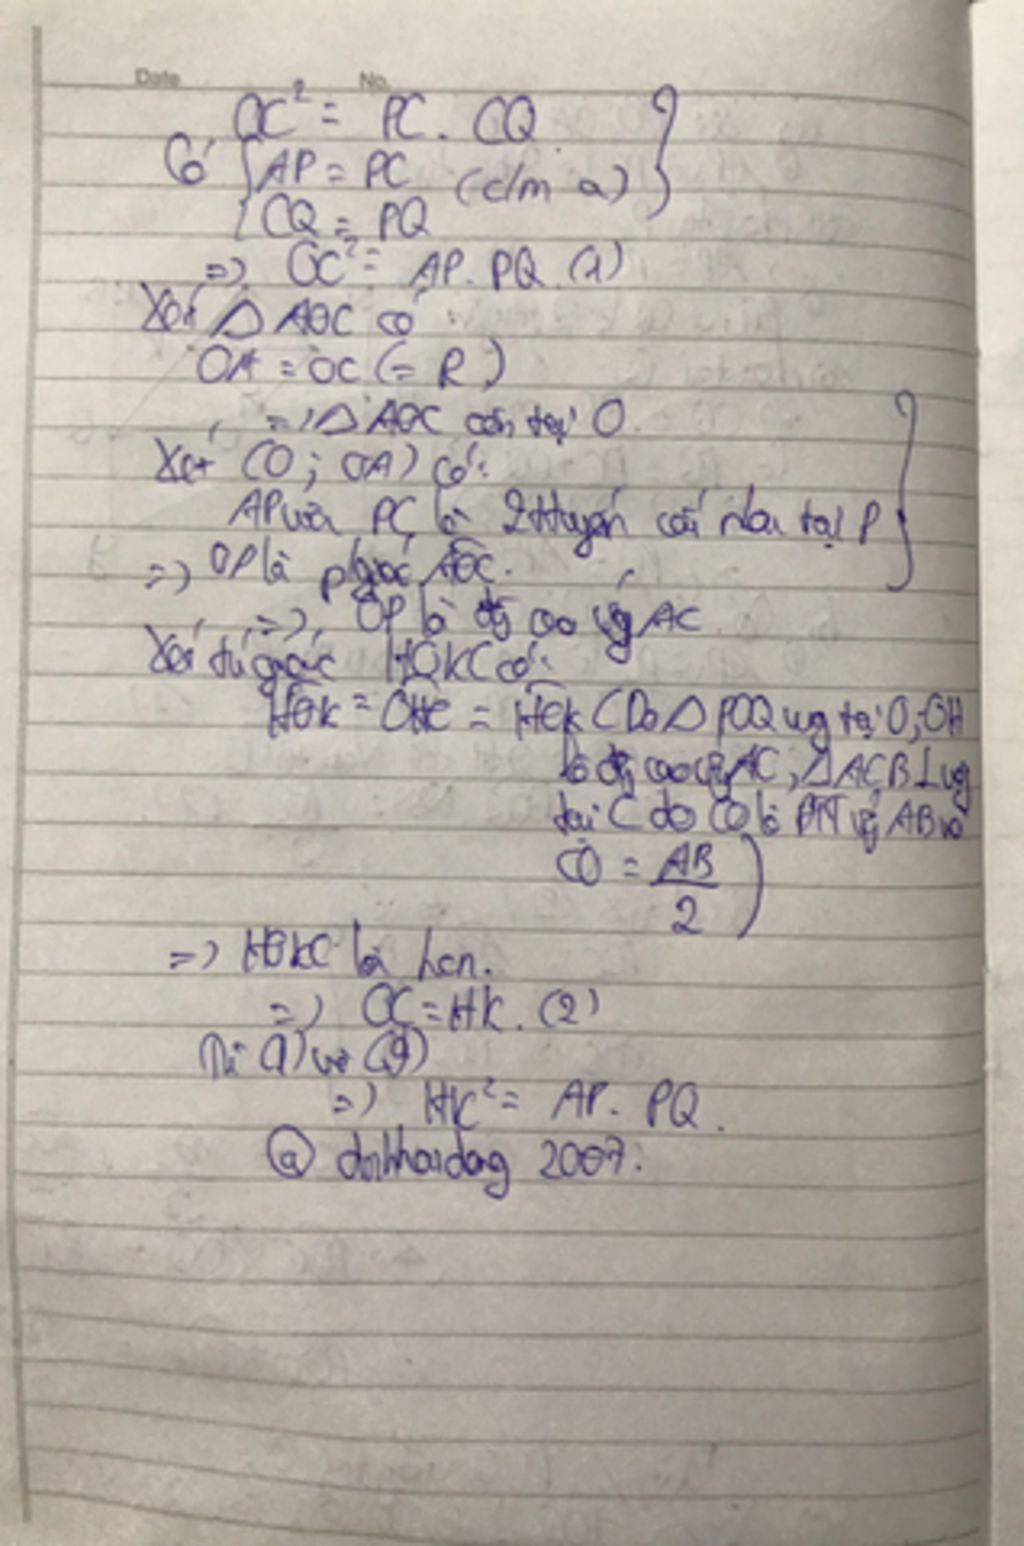 Date No.
OC² = PC. CQ
Có { AP = PC (c/m a)
CQ = PQ
=> OC² = AP. PQ (1)
Xét Δ AOC có:
OA = OC (= R)
=> Δ AOC cân tại O.
Xét (O; OA) có:
AP và PC là 2 tiếp tuyến cắt nhau tại P
=> OP là pgiác AOC.
=> OP là đg cao ứg AC
Xét tứ giác HOKC có:
HOK = OHC = HCK (Do Δ POQ vg tại O, OH
là đg cao ứg AC, Δ ACB vg
tại C do CO là ứg AB và
CO = AB/2)
=> HOKC là hcn.
=> OC = HK. (2)
Từ (1) và (2)
=> HK² = AP. PQ.
@ dinhhaidang 2007.